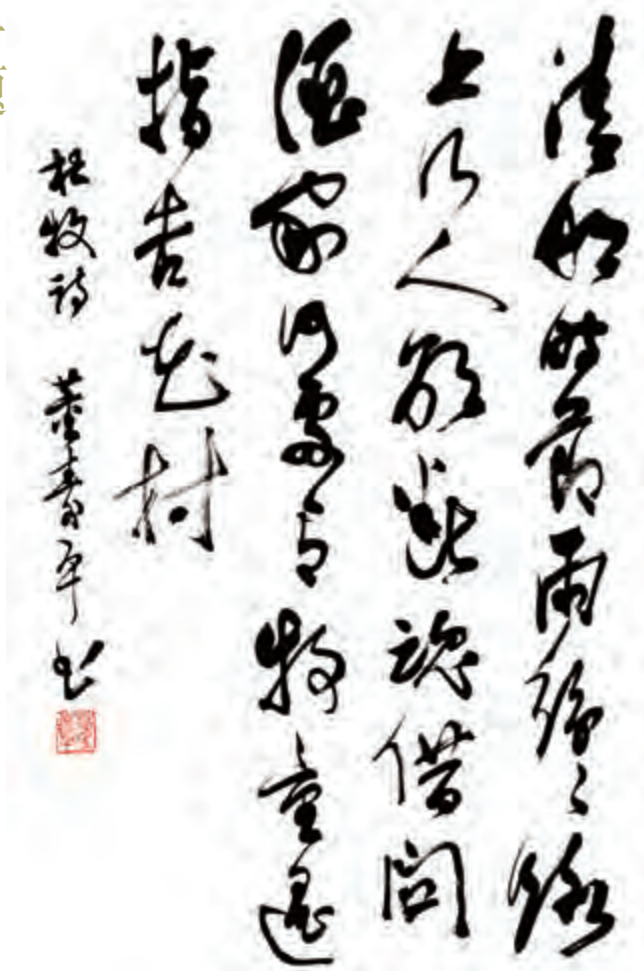 清明時節雨紛々路
上行人欲斷魂借問
酒家何處有牧童遙
指杏花村
杜牧詩 董壽平书